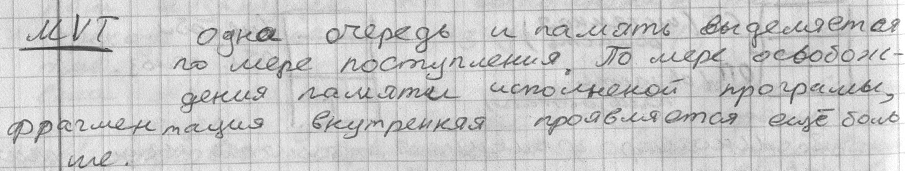 MVT одна очередь и память выделяется
по мере поступления. По мере освобож-
дения памяти исполненой програмы,
фрагментация внутренняя проявляется ещё боль
ше.